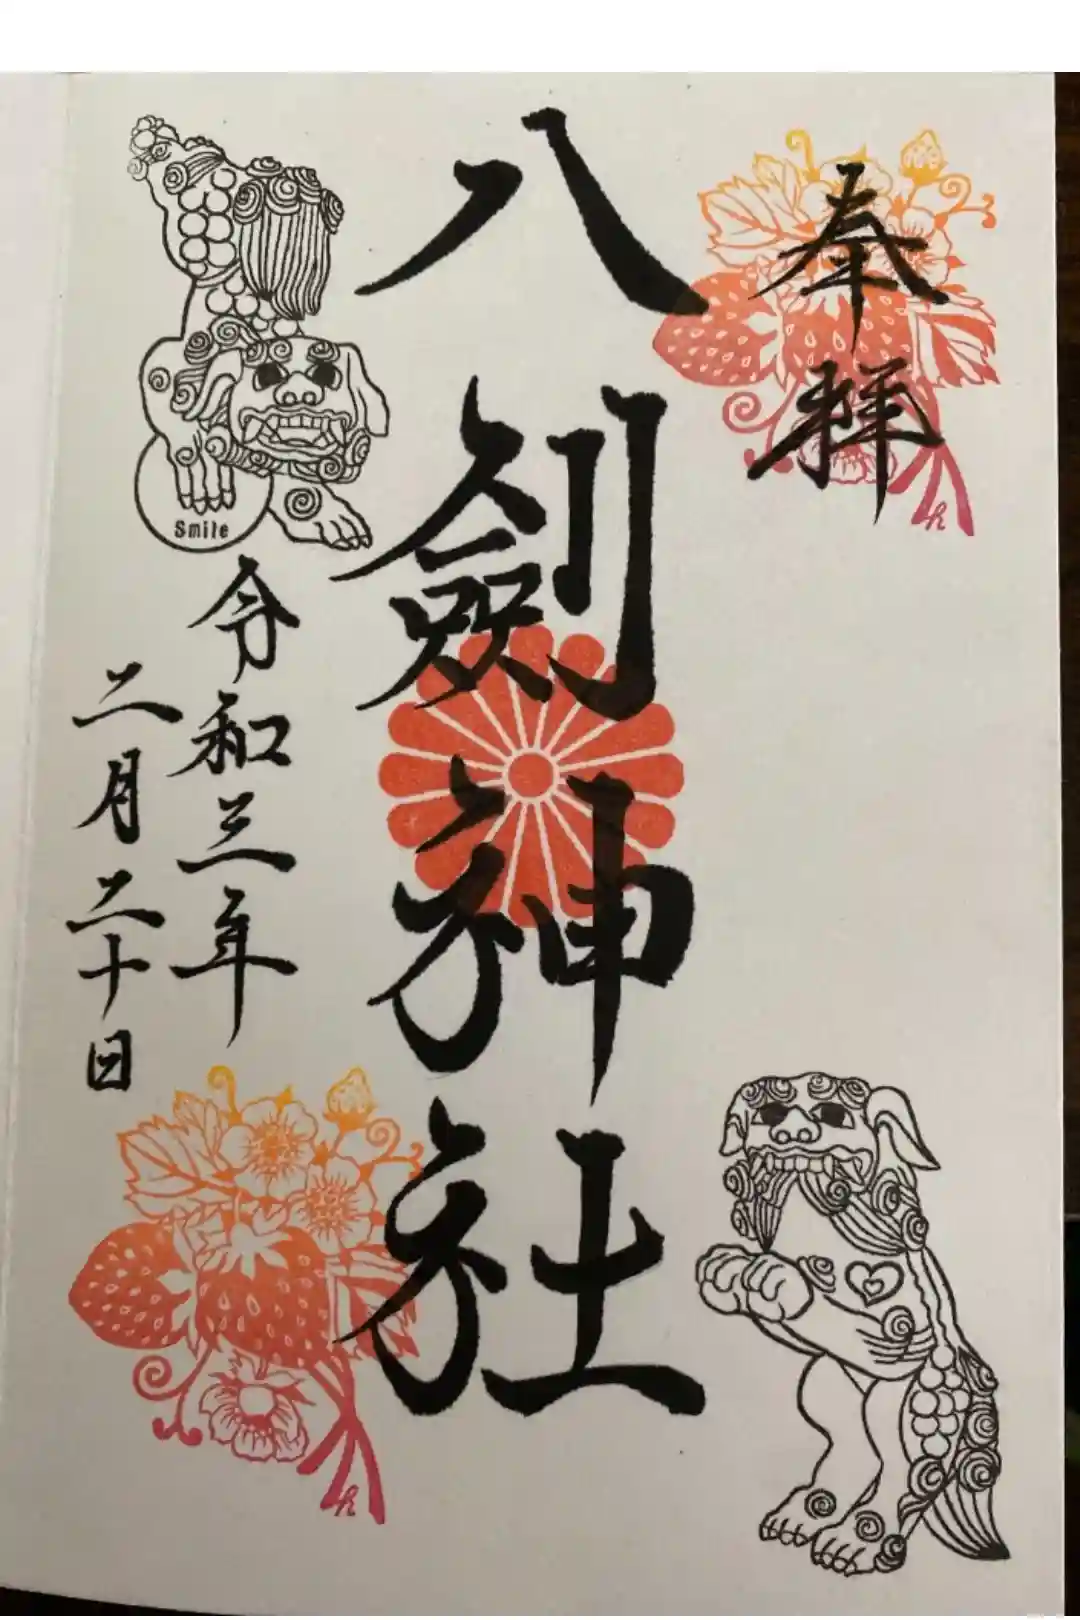 奉拝
八劔神社
令和三年
二月二十日
Smile
h
h